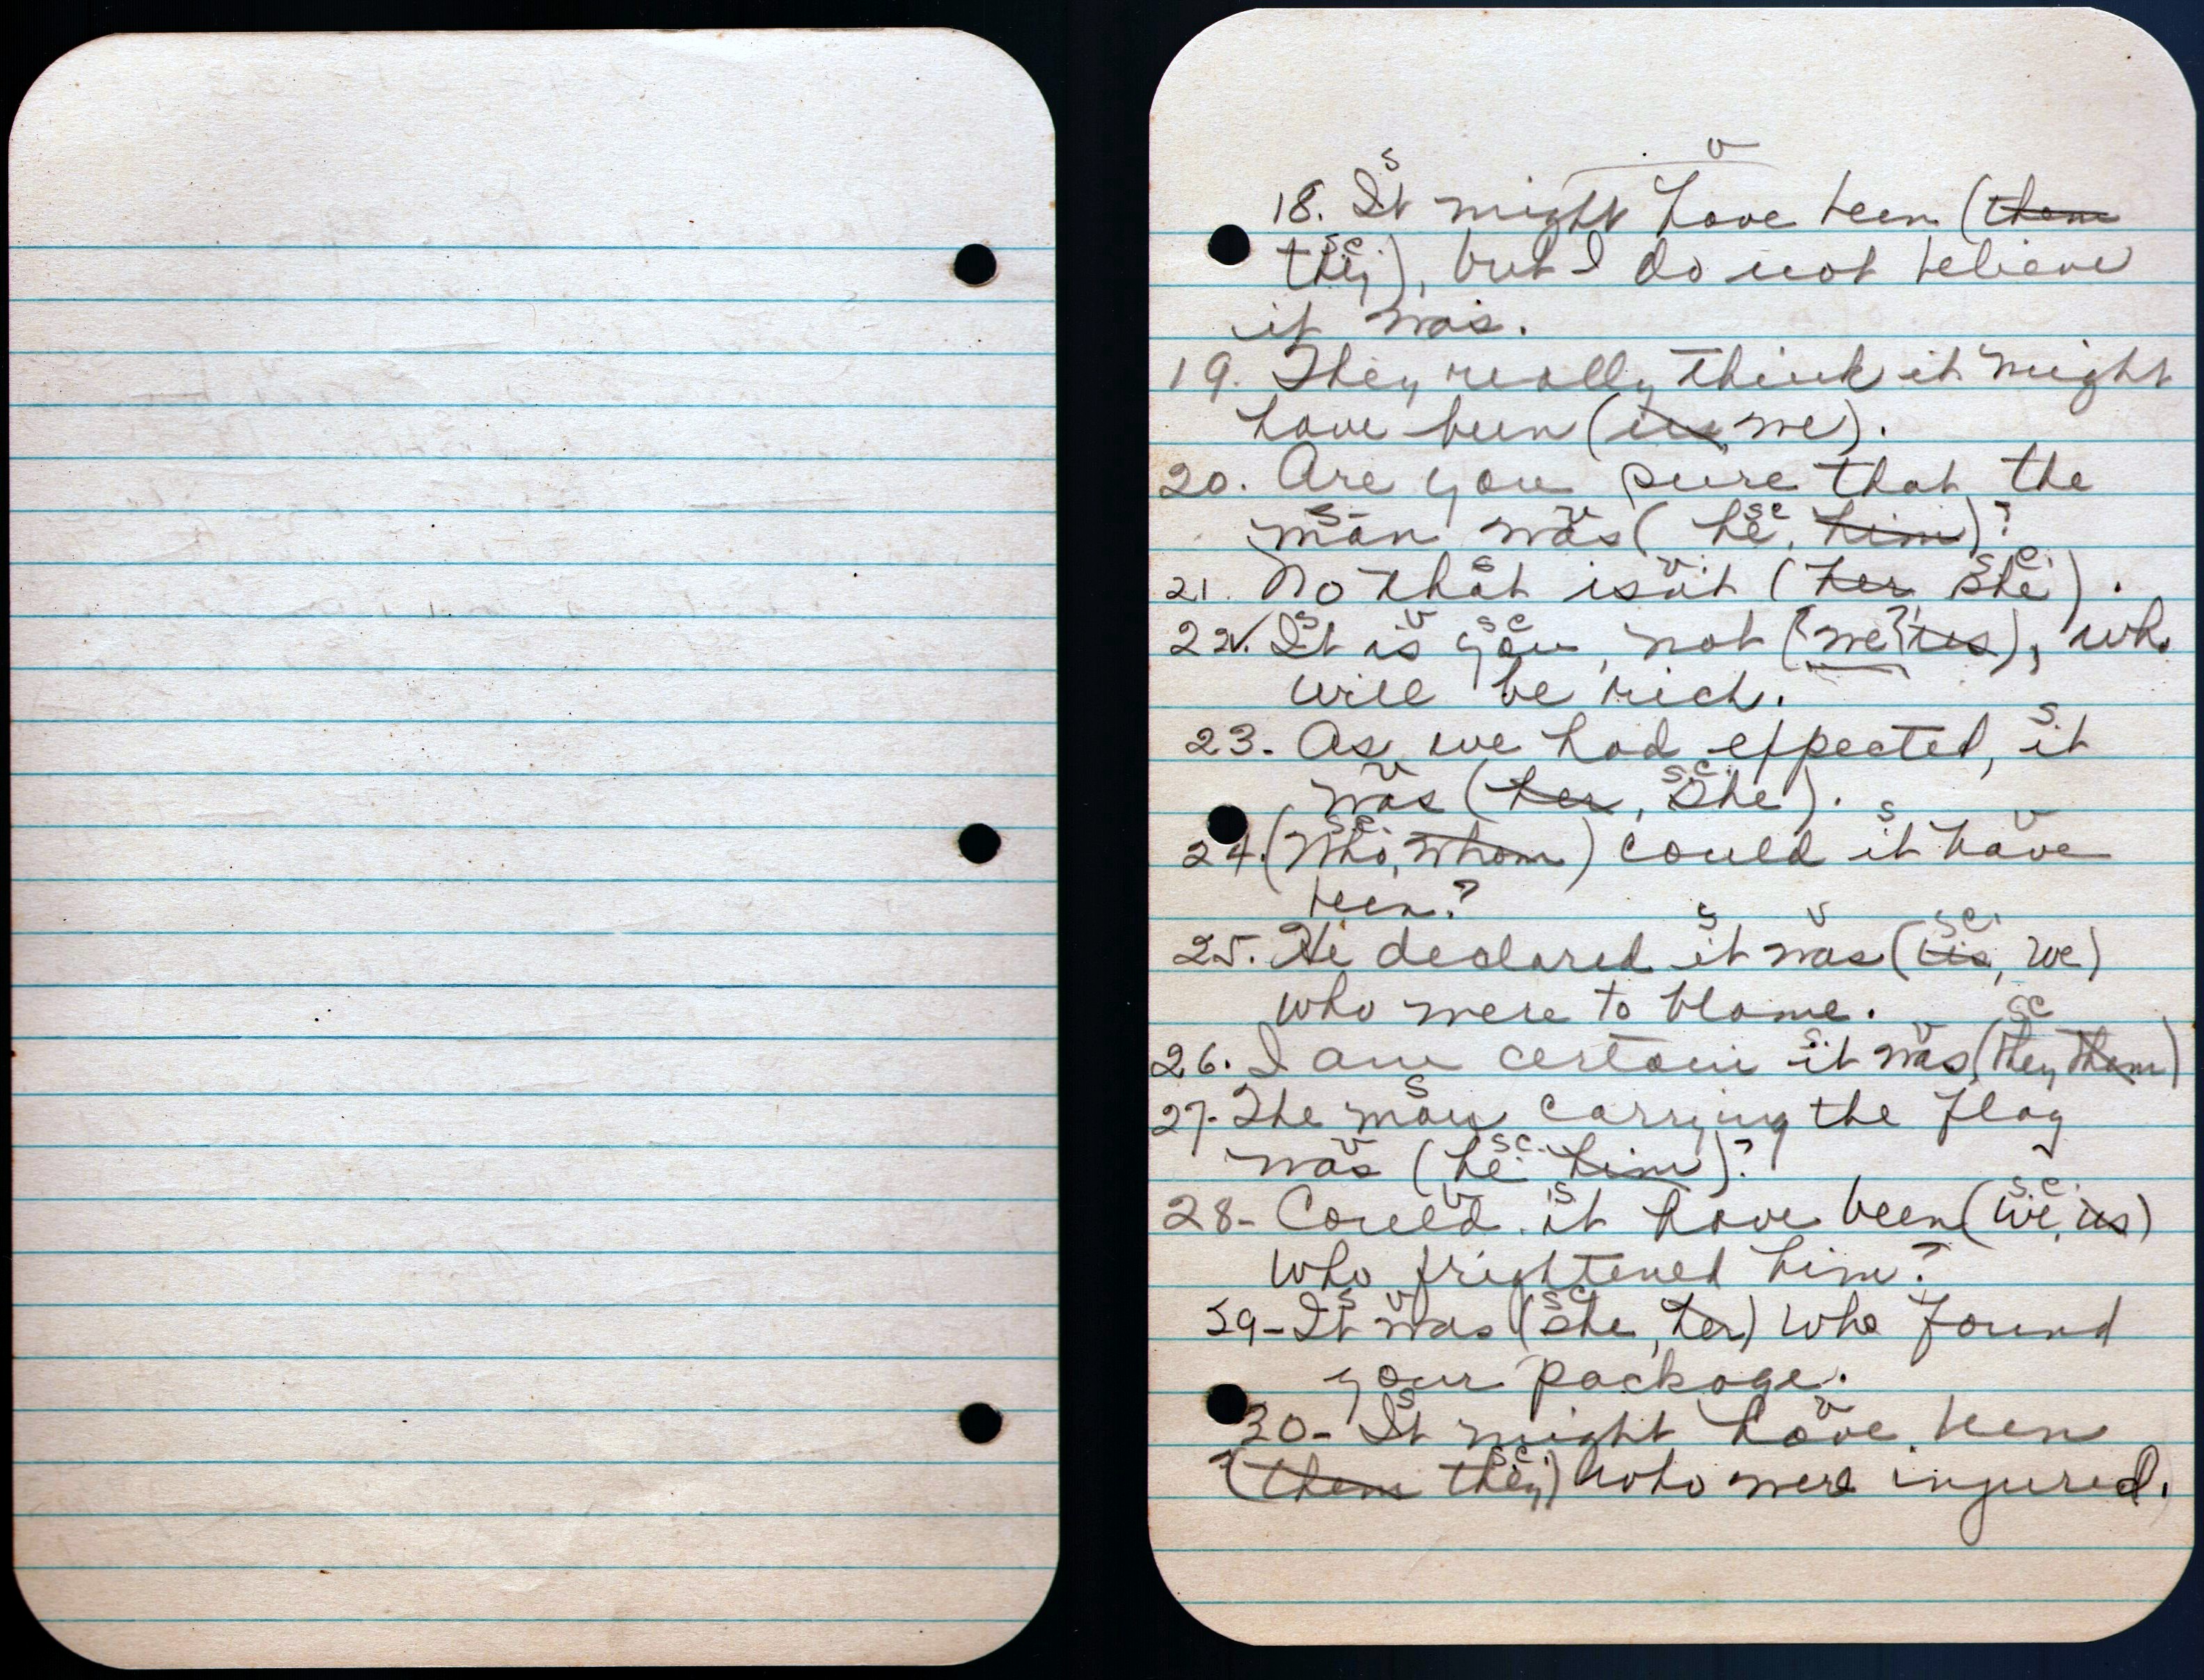 s v
18. It might have been (them
sc.
they), but I do not believe
it was.
19. They really think it might
have been (us we).
20. Are you sure that the
s v sc
man was (he, him)?
s v. s c.
21. No that isn't (her she).
s v s c
22. It is you, not (we? us), who
will be rich.
s.
23. As we had expected, it
v s.c.
was (her, she).
s.c. s v
24. (Who, whom) could it have
been?
s v s c.
25. He declared it was (us, we)
who were to blame.
s. v sc
26. I am certain it was (they them)
s
27- The man carrying the flag
v sc.
was (he him)?
v s s.c.
28- Could it have been (we, us)
who frightened him?
s v sc
29- It was (she, her) who found
your package.
s v
30- It might have been
s.c.
(them they) who were injured.